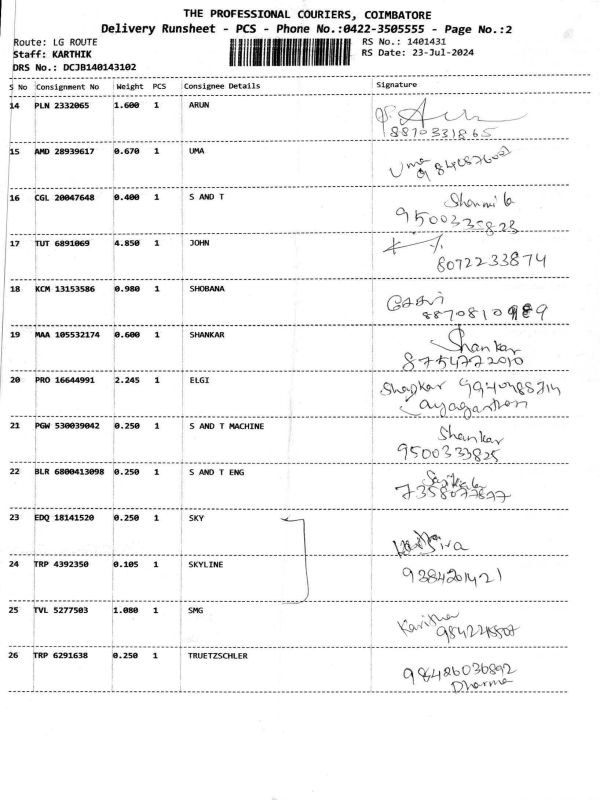 THE PROFESSIONAL COURIERS, COIMBATORE
Delivery Runsheet - PCS - Phone No.:0422-3505555 - Page No.:2
Route: LG ROUTE
RS No.: 1401431
Staff: KARTHIK
RS Date: 23-Jul-2024
DRS No.: DCJB140143102
S No Consignment No Weight PCS Consignee Details Signature
14 PLN 2332065 1.600 1 ARUN
8870331865
15 AMD 28939617 0.670 1 UMA
Uma
16 CGL 20047648 0.400 1 S AND T
9500333823
17 TUT 6891069 4.850 1 JOHN
8072233874
18 KCM 13153586 0.980 1 SHOBANA
19 MAA 105532174 0.600 1 SHANKAR
Shankar
8754772010
20 PRO 16644991 2.245 1 ELGI
21 PGW 530039042 0.250 1 S AND T MACHINE
Shankar
9500333825
22 BLR 6800413098 0.250 1 S AND T ENG
23 EDQ 18141520 0.250 1 SKY
24 TRP 4392350 0.105 1 SKYLINE
9384201421
25 TVL 5277503 1.080 1 SMG
26 TRP 6291638 0.250 1 TRUETZSCHLER
Dharma